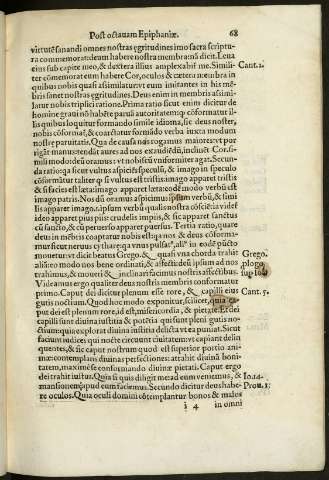 Post octauam Epiphaniæ. 68
virtutē sanandi omnes nostras egritudines imo sacra scriptu
ra commemorat deum habere nostra membra: nā dicit. Leua Cant. 2.
eius sub capite meo, & dextera illius amplexabit me. Simili-
ter cōmemorat eum habere Cor, oculos & cætera membra in
quibus nobis quasi assimilatur: vt eum imitantes in his mē-
bris sanet nostras egritudines. Deus enim in membris assimi
latur nobis triplici ratione. Prima ratio sicut enim dicitur de
homine graui nō habēte paruū auctoritatem: cōformatur il-
lis quibus loquitur formando simile idioma, sic deus noster,
nobis cōformat, & coarctatur formādo verba iuxta modum
nostre paruitatis. Qua de causa nōs rogamus maiores: vt por
rigāt manus: tendit aures ad nos exaudiēdos, inclinēt Cor. si-
mili modo deū oramus: vt nobiscū vniformiter agat. Secun-
da ratio: qa sicut vultus aspiciēs speculū, & imago in speculo
cōformātur taliter qp si vultus est tristis: imago apparet tristis
& si facies est læta: imago apparet læta: eodē modo verbū est
imago patris. Nos dū oramus aspicimus ipsum verbum, & simi
lis apparet imago. s ipsum verbū qualis nostra cōsciētia: videl
ideo apparet pius piis: crudelis impiis, & sic apparet sanctus
cū sancto, & cū peruerso apparet puersus. Tertia ratio, quare
deus in mēbris coaptatur nobis est: qa nos & deus cōforma-
mur sicut neruus cytharę: qa vnus pulsat⁹, ali⁹ in eodē pūcto
mouetur: vt dicit beatus Grego. & quasi vna chorda trahit Grego.
aliā: eo modo nos bene ordinati, & affecti deū ipsum ad nos
trahimus, & moueri & inclinari facimus nostris affectibus. sup Iob
Videamus ergo qualiter deus nostris membris conformatur
primo. Caput dei dicitur plenum esse rore, & capilli eius Cant. 5.
gutis noctium. Quod hoc modo exponitur, scilicet, quia ca-
put dei est plenum rore, id est, misericordia, & pietate. Et dei
capilli sunt diuina iustitia & potētia qui sunt pleni gutis no-
ctium: quia explorat diuina iustitia delicta vt ea puniat. Sicut
facium iudices qui nocte circuunt ciuitatem: vt capiant delin
quentes, & sic caput nostrum quod est superior portio ani-
ma: contemplans diuinas perfectiones: attrahit diuinā boni-
tatem, maximè se conformando diuinæ pietati. Caput ergo
dei trahit iuitatus. Quia si quis diligit me ad eum veniemus, & Io. 14.
mansionem apud eum faciemus. Secundo dicitur deus habe- Prou. 15
re oculos. Quia oculi domini cōtemplantur bonos & malos
i 4 in omni